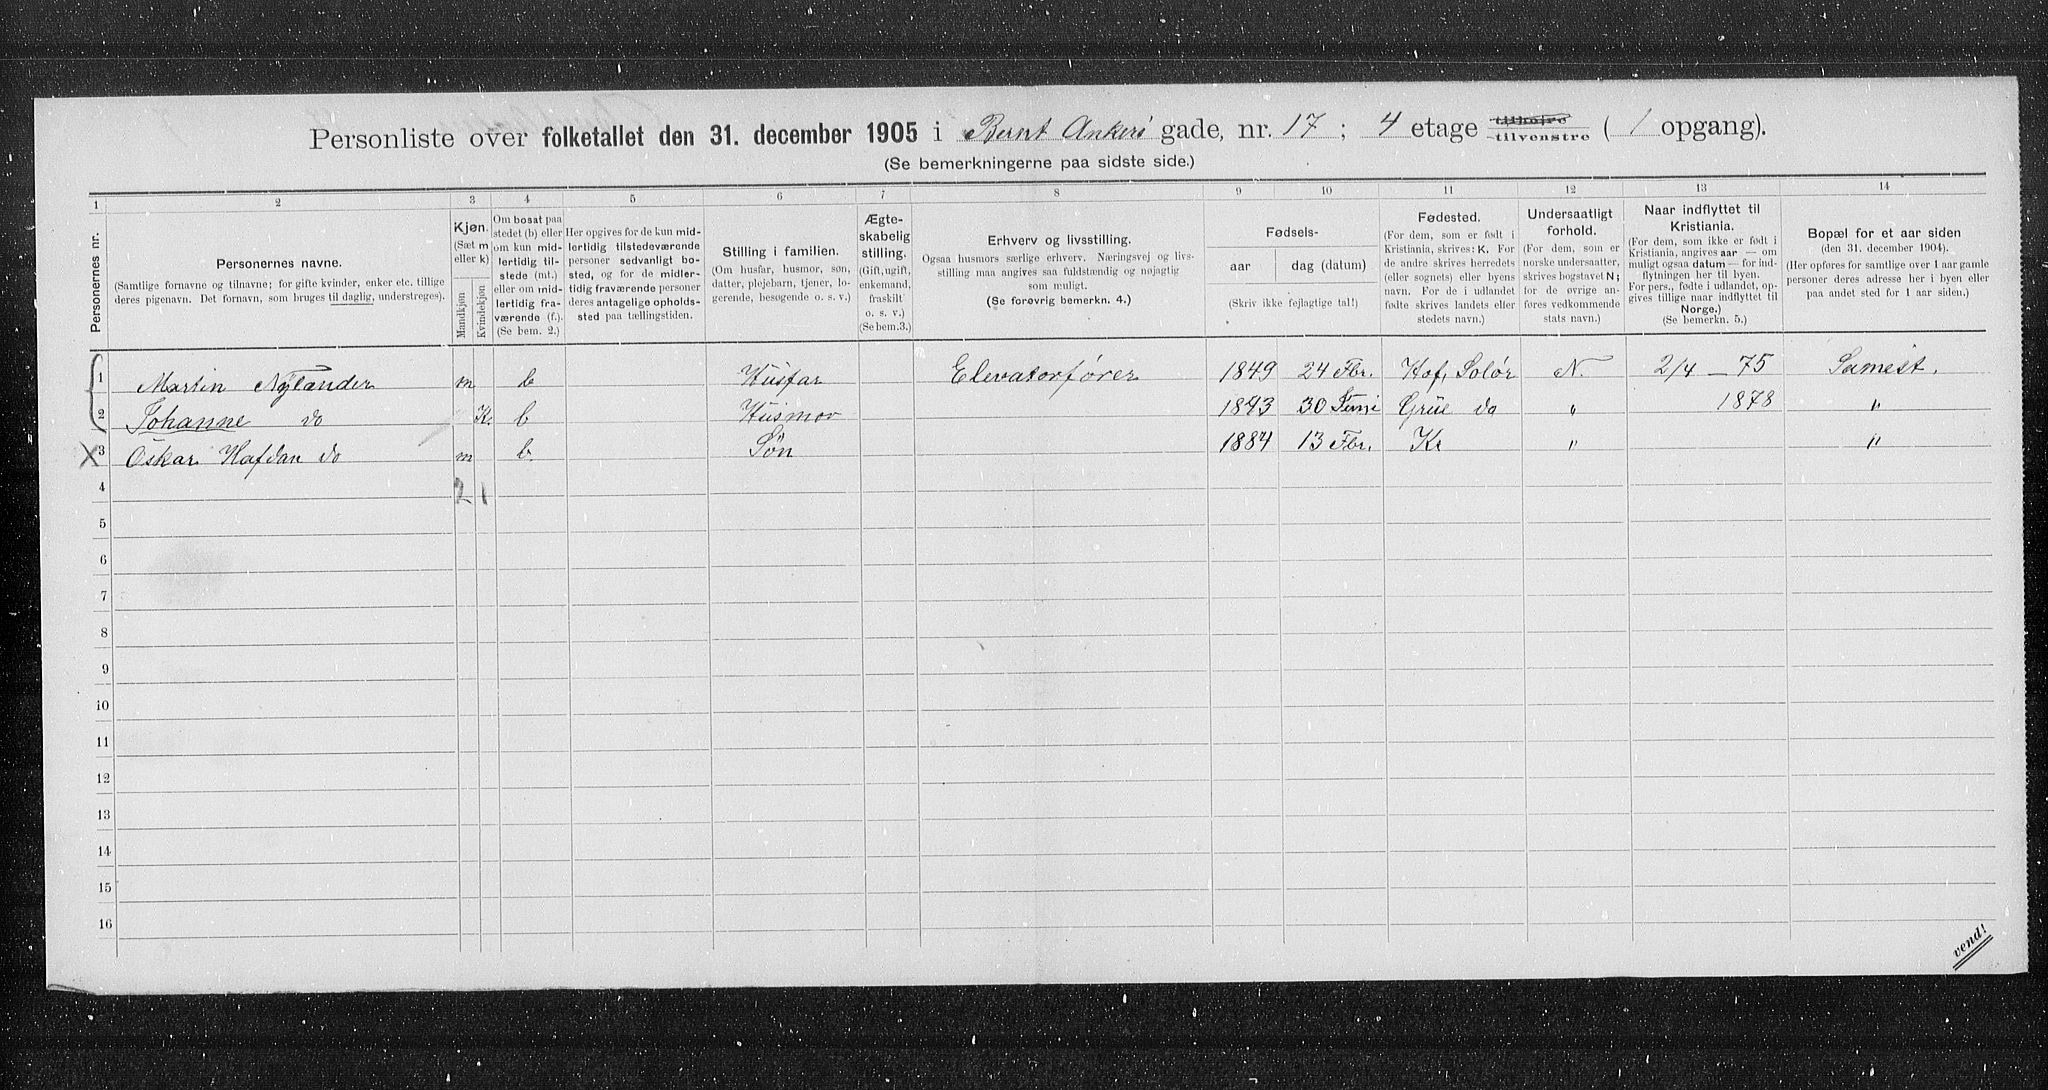 Personliste over folketallet den 31. december 1905 i Bernt Ankers gade, nr. 17; 4 etage tilhøjre tilvenstre (1 opgang).
(Se bemerkningerne paa sidste side.)
1 2 3 4 5 6 7 8 9 10 11 12 13 14
Personernes nr.
Personernes navne.
(Samtlige fornavne og tilnavne; for gifte kvinder, enker etc. tillige deres pigenavn. Det fornavn, som bruges til daglig, understreges).
Kjøn.
(Sæt m eller k)
Mandkjøn
Kvindekjøn
Om bosat paa stedet (b) eller om kun midlertidig tilstede (mt.) eller om midlertidig fraværende (f.). (Se bem. 2.)
Her opgives for de kun midlertidig tilstedeværende personer sedvanligt bosted, og for de midlertidig fraværende personer deres antagelige opholdssted paa tællingstiden.
Stilling i familien.
(Om husfar, husmor, søn, datter, plejebarn, tjener, logerende, besøgende o. s. v.)
Ægteskabelig stilling.
(Gift, ugift, enkemand, fraskilt o. s. v.)
(Se bem. 3.)
Erhverv og livsstilling.
Ogsaa husmors særlige erhverv. Næringsvej og livsstilling maa angives saa fuldstændig og nøjagtig som muligt.
(Se forøvrig bemerkn. 4.)
Fødsels-
aar
dag (datum)
(Skriv ikke fejlagtige tal!)
Fødested.
(For dem, som er født i Kristiania, skrives: K. For de andre skrives herredets (eller sognets) eller byens navn. For de i udlandet fødte skrives landets eller stedets navn.)
Undersaatligt forhold.
(For dem, som er norske undersaatter, skrives bogstavet N; for de øvrige anføres vedkommende stats navn.)
Naar indflyttet til Kristiania.
(For dem, som ikke er født i Kristiania, angives aar — om muligt ogsaa datum — for indflytningen her til byen. For pers., fødte i udlandet, opgives tillige naar indflyttet til Norge.)
(Se bemerkn. 5.)
Bopæl for et aar siden
(den 31. december 1904).
(Her opføres for samtlige over 1 aar gamle personer deres adresse her i byen eller paa andet sted for 1 aar siden.)
1 Martin Nylander m b Husfar Elevatorfører 1849 24 Fbr. Hof, Solør N. 2/4 – 75 Samést.
2 Johanne do K. b Husmor 1843 30 Juni Grue do " 1878 "
X 3 Oskar Hafdan do m b. Søn 1884 13 Fbr. Kr " "
4 2 1
5
6
7
8
9
10
11
12
13
14
15
16
vend!